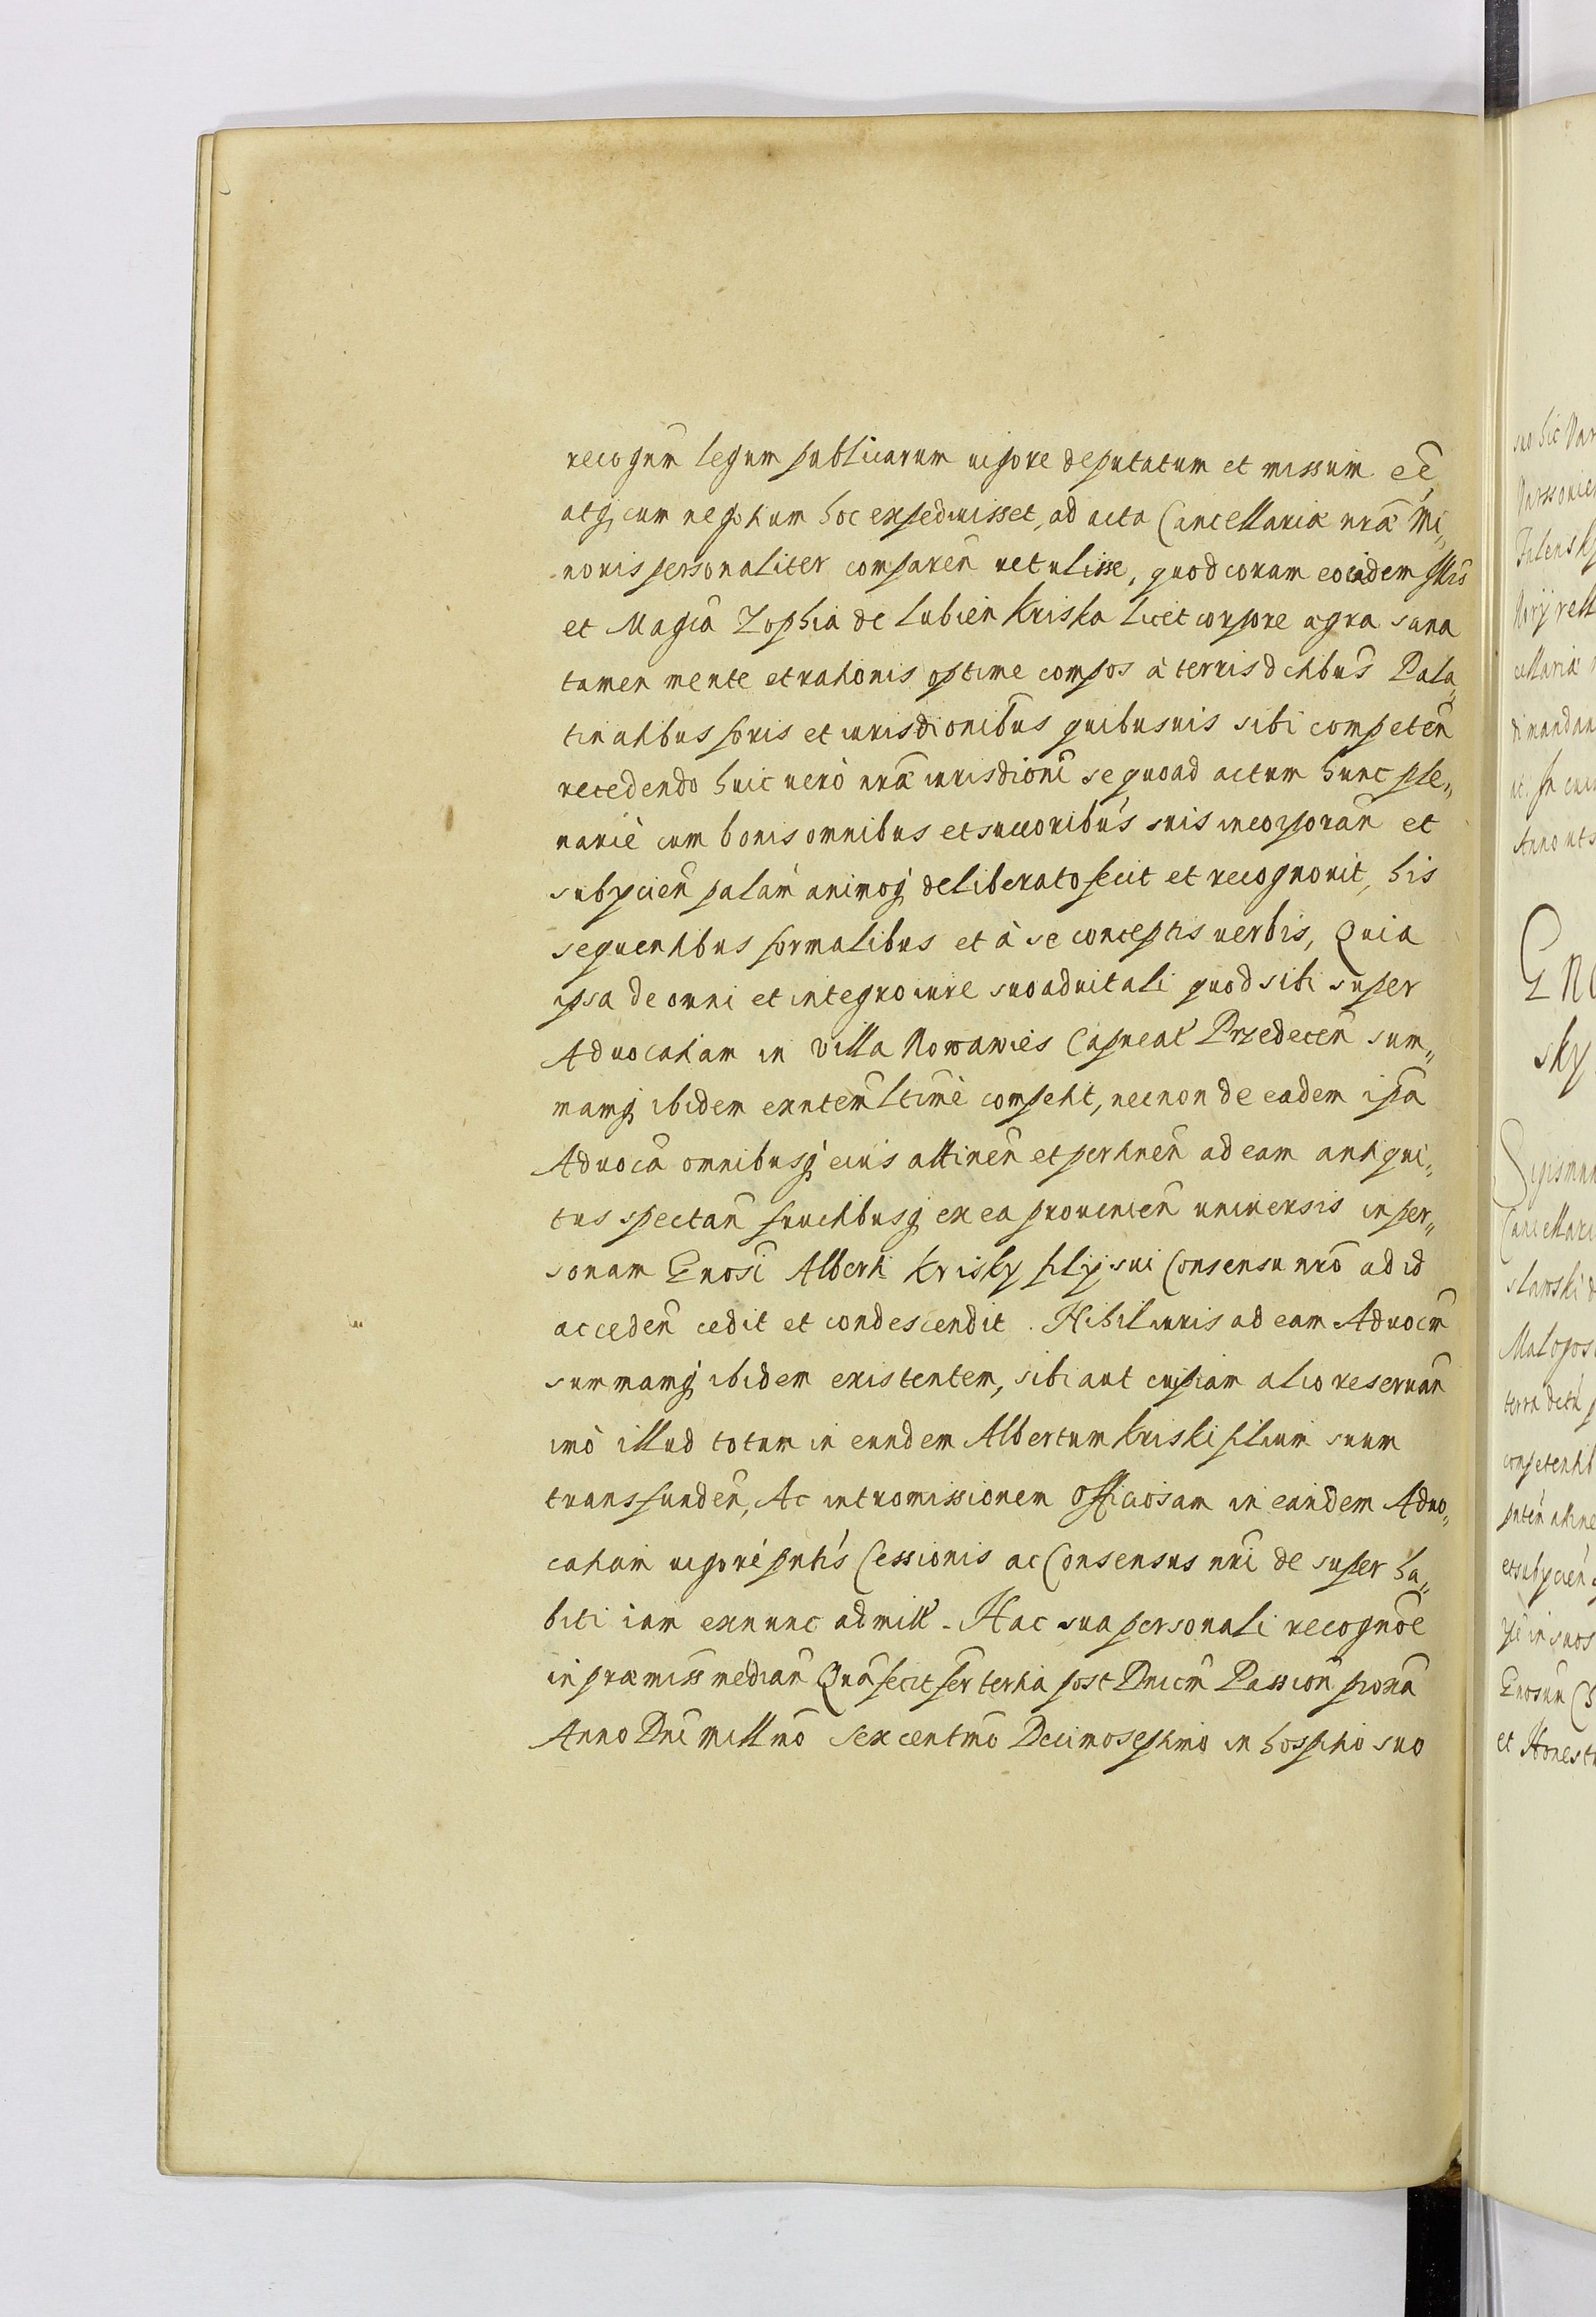 recognm legum publicarum uigore deputatum et missum eẽ,
atq; cum negotium hoc expediuisset, ad acta Cancellariæ nrã Mi„
noris personaliter comparen̄ retulisse, quod coram eocidem Illris
et Magcã Zophia de Lubien Kriska licet corpore ægra sana
tamen mente et rationis optime compos à terris dictibus Pala„
tinatibus foris et iurisdionibus quibusuis sibi competen̄
recedendo huic uerò nrã iurisdioni se quoad actum hunc ple„
nariè cum bonis omnibus et succoribus suis incorporan̄ et
subijcien̄ palam animoq; deliberato fecit et recognouit, his
sequentibus formalibus et à se conceptis uerbis, Quia
ipsa de omni et integro iure suo aduitali quod sibi super
Aduocatiam in Villa Nowawies Capneat Przedecen̄ sum„
mamq; ibidem exnten̄ ltimè competit, necnon de eadem ipã
Aduocã omnibusq; eius attinen̄ et pertinen̄ ad eam antiqui„
tus spectan̄ fructibusq; ex ea prouenien̄ uniuersis in per„
sonam Gnosi Alberti Krisky filij sui Consensu nrõ ad id
acceden̄ cedit et condescendit. Nihil iuris ad eam Aduocm̄
summamq; ibidem existentem, sibi aut cuipiam alio reseruan̄
imò illud totum in eundem Albertum Kriski filium suum
transfunden̄, Ac intromissionem officiosam in eandem Aduo„
catiam uigore pntis Cessionis ac Consensus nri de super ha„
biti iam exnunc admitt. Hac sua personali recognõe
in præmiss median̄ Quã fecit fer tertia post Dnicm̄ Passion̄ proxã
Anno Dni millmõ sexcentmõ Decimoseptimo in hospitio suo